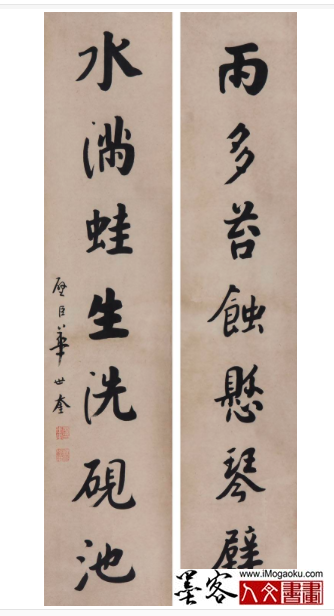 雨多苔蝕懸琴壁
水滿蛙生洗硯池
啓臣華世奎
www.iMogaoku.com
墨客
人文書畫